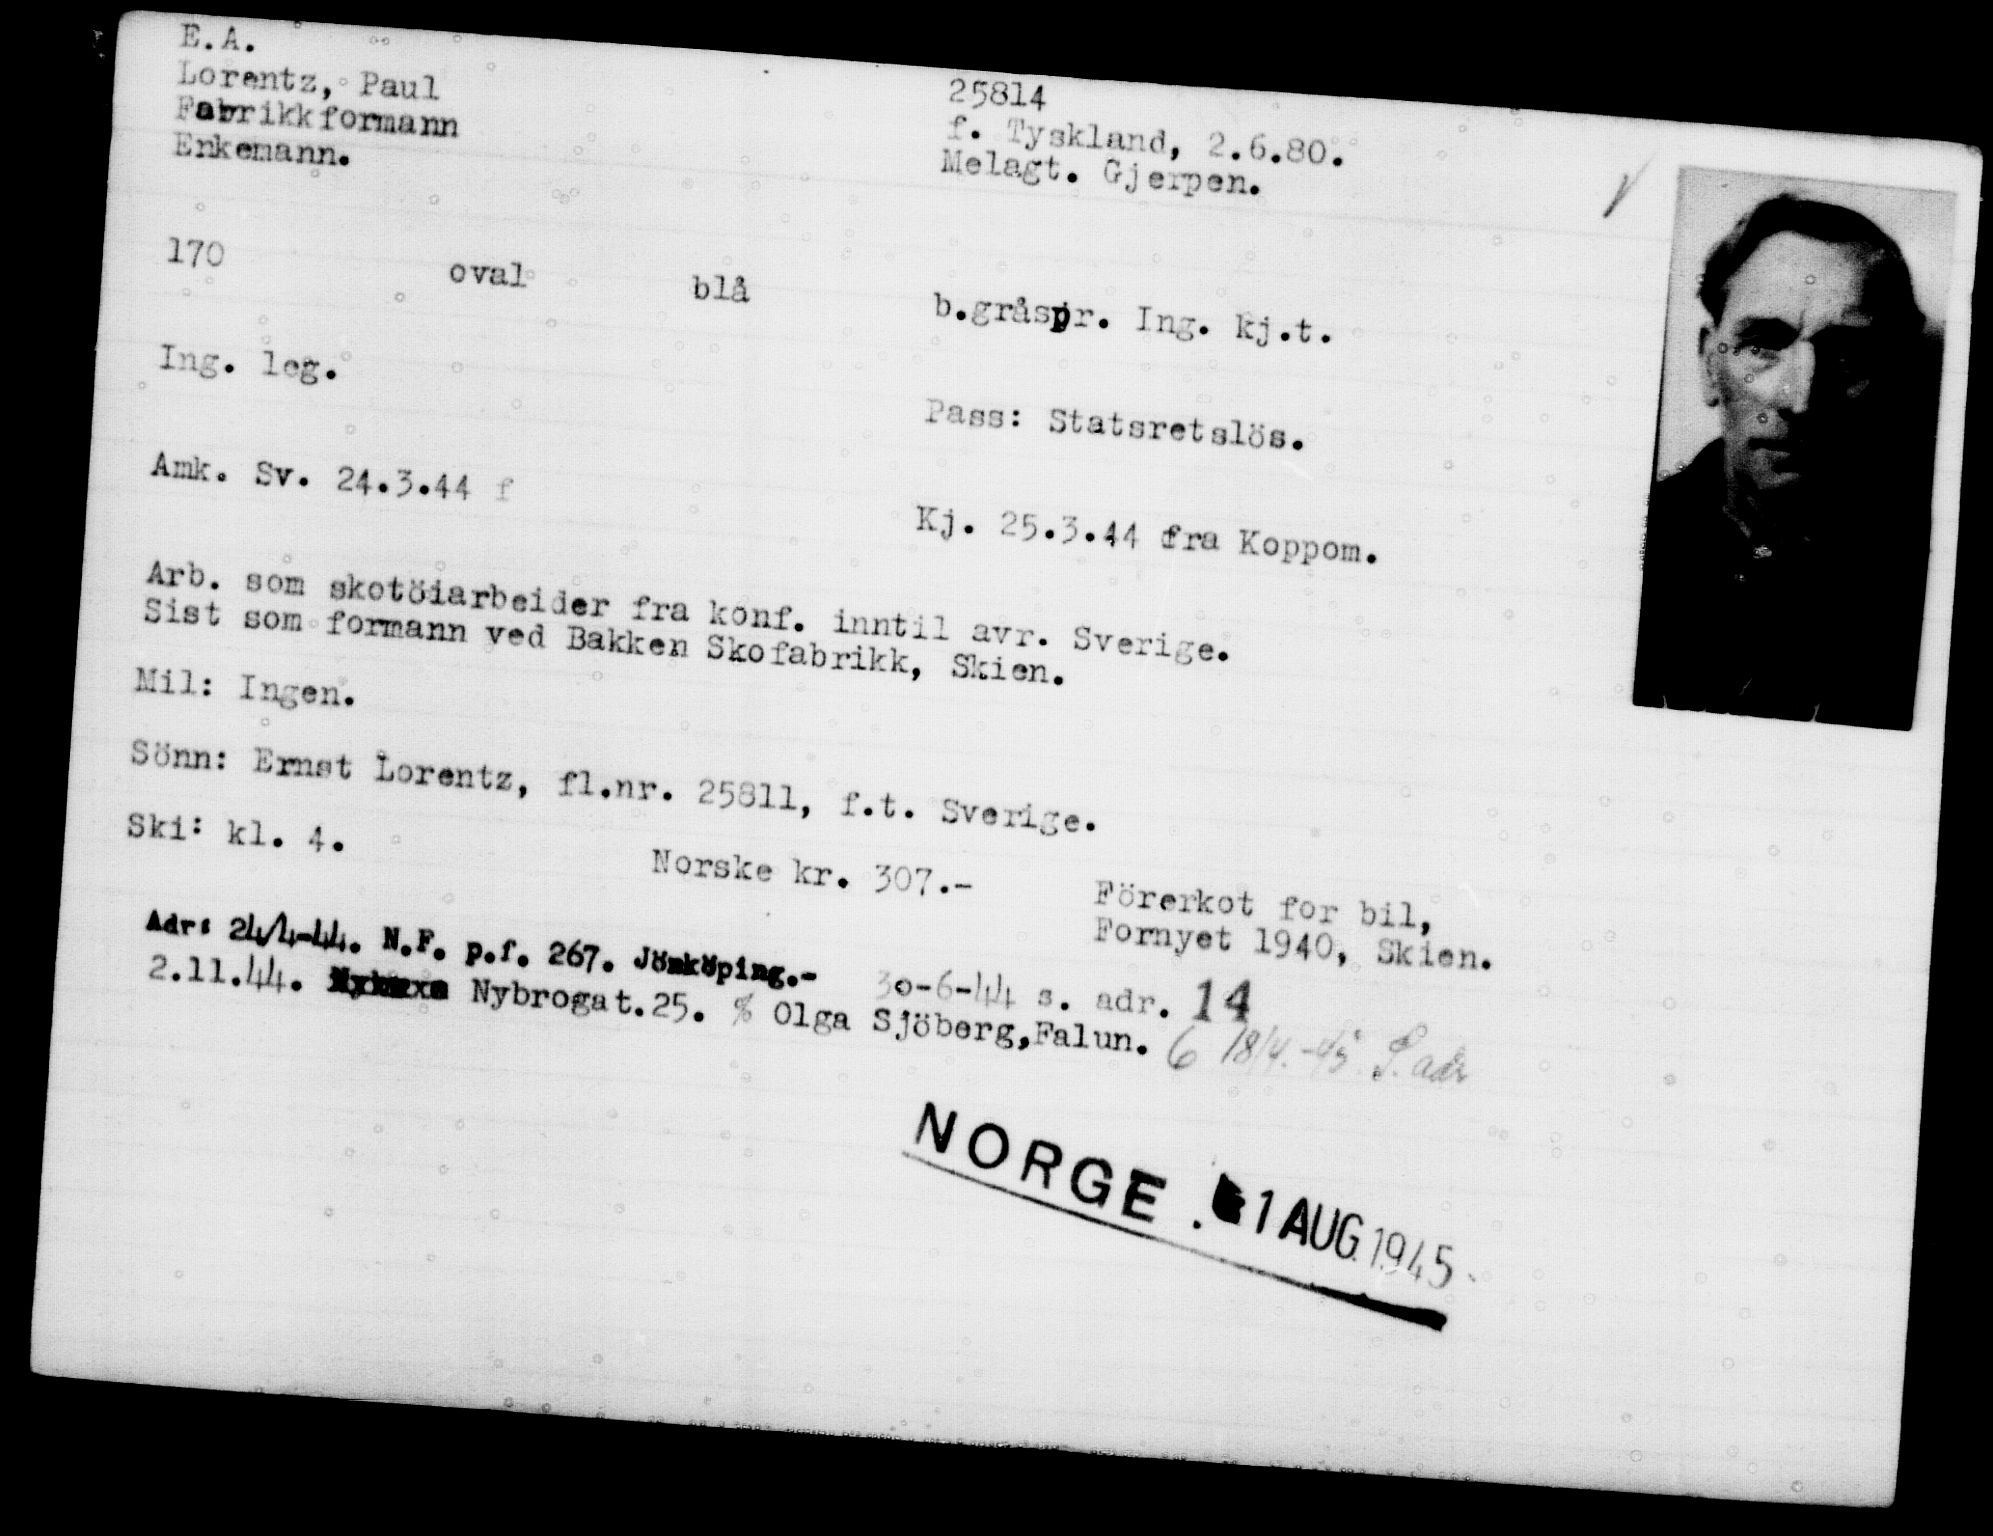 E.A.
Lorentz, Paul
Fabrikkformann
Enkemann.
25814
f. Tyskland, 2.6.80.
Melagt. Gjerpen.
170 oval blå b.gråspr. Ing. kj.t.
Ing. leg.
Pass: Statsretslös.
Amk. Sv. 24.3.44 f
Kj. 25.3.44 fra Koppom.
Arb. som skotöiarbeider fra konf. inntil avr. Sverige.
Sist som formann ved Bakken Skofabrikk, Skien.
Mil: Ingen.
Sönn: Ernst Lorentz, fl.nr. 25811, f.t. Sverige.
Ski: kl. 4.
Norske kr. 307.-
Förerkot for bil,
Fornyet 1940, Skien.
Adr: 24/4-44. N.F. p.f. 267. Jönköping.- 30-6-44 s. adr. 14
2.11.44. Nybrogat.25. % Olga Sjöberg,Falun. 6 18/4.-45 S. adr
NORGE. 1 AUG 1945